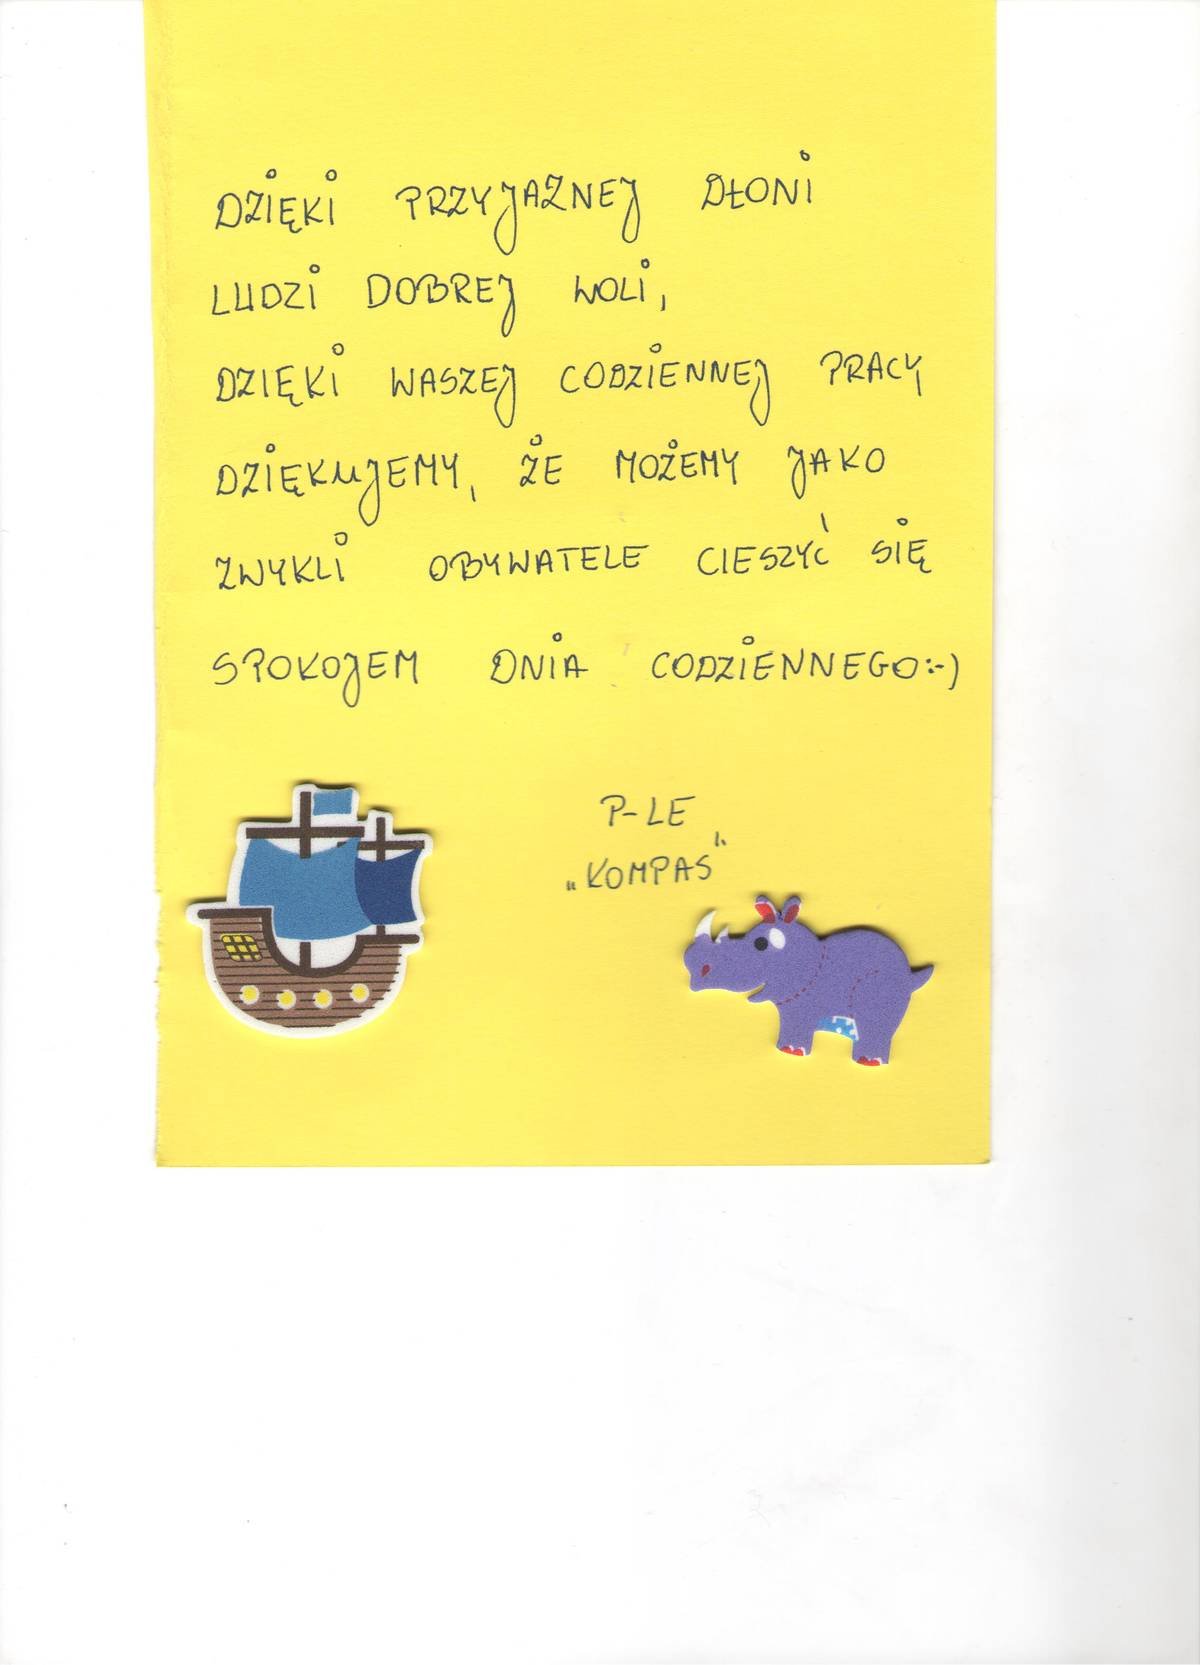 DZIĘKI PRZYJAZNEJ DŁONI
LUDZI DOBREJ WOLI,
DZIĘKI WASZEJ CODZIENNEJ PRACY
DZIĘKUJEMY, ŻE MOŻEMY JAKO
ZWYKLI OBYWATELE CIESZYĆ SIĘ
SPOKOJEM DNIA CODZIENNEGO:-)
P-LE
„KOMPAS".